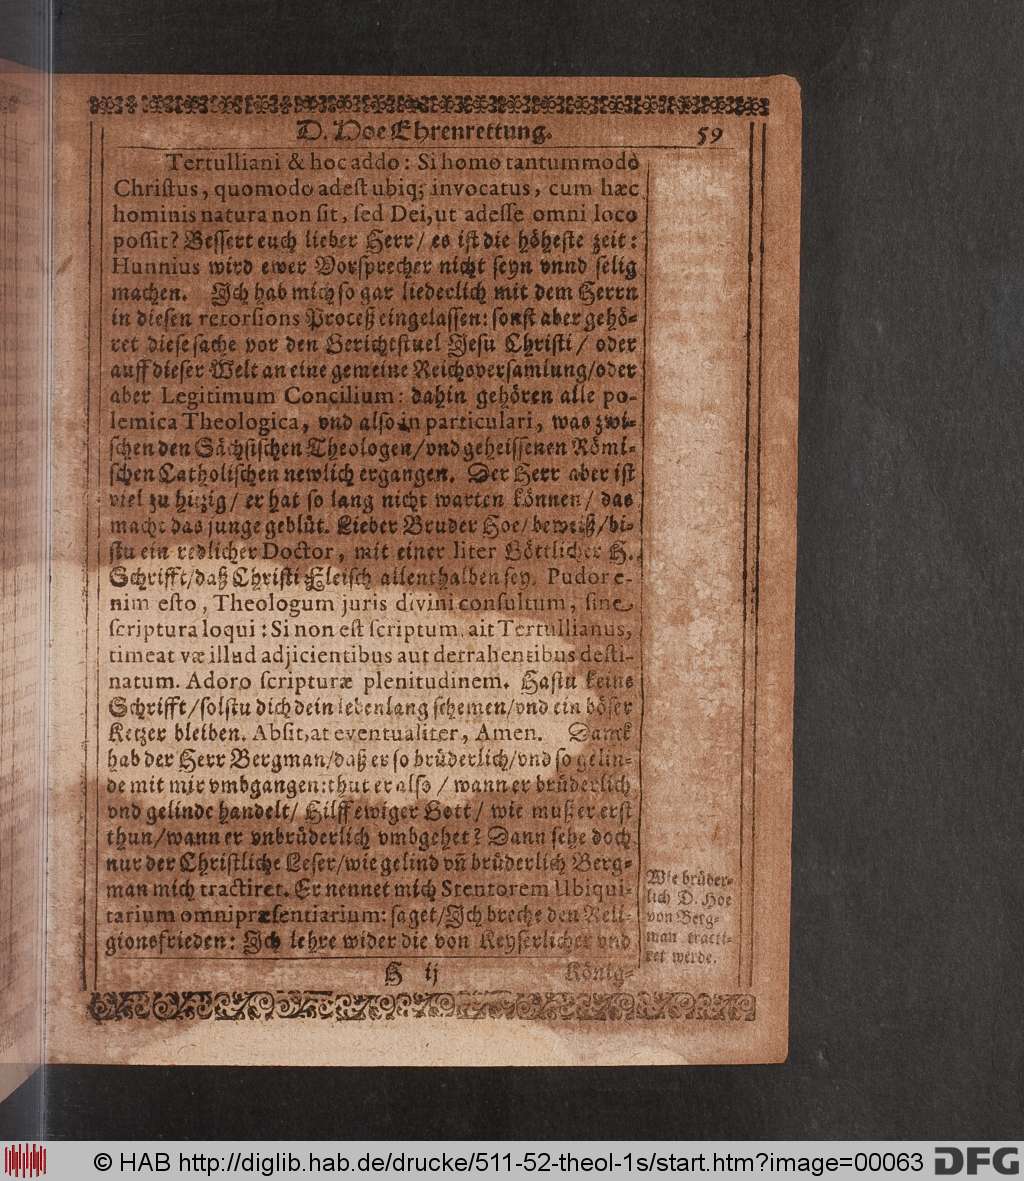 D. Hoe Ehrenrettung. 59
Tertulliani & hoc addo: Si homo tantummodò
Christus, quomodo adest ubiq; invocatus, cum hæc
hominis natura non sit, sed Dei, ut adesse omni loco
possit? Bessert euch lieber Herr/ es ist die höheste zeit:
Hunnius wird ewer Vorsprecher nicht seyn vnnd selig
machen. Ich hab mich so gar liederlich mit dem Herrn
in diesen retorsions Proceß eingelassen: sonst aber gehö-
ret diese sache vor den Gerichtstuel Jesu Christi/ oder
auff dieser Welt an eine gemeine Reichsversamlung/oder
aber Legitimum Concilium: dahin gehören alle po-
lemica Theologica, vnd also in particulari, was zwi-
schen den Sächsischen Theologen/vnd geheissenen Römi-
schen Catholischen newlich ergangen. Der Herr aber ist
viel zu hitzig/ er hat so lang nicht warten können/ das
macht das junge geblüt. Lieber Bruder Hoe/ beweiß/bi-
stu ein redlicher Doctor, mit einer liter Göttlicher H.
Schrifft/daß Christi Fleisch allenthalben sey. Pudor e-
nim esto, Theologum juris divini consultum, sine
scriptura loqui: Si non est scriptum, ait Tertullianus,
timeat væ illud adjicientibus aut detrahentibus desti-
natum. Adoro scripturæ plenitudinem. Hastu keine
Schrifft/solstu dich dein lebenlang schemen/vnd ein böser
Ketzer bleiben. Absit, at eventualiter, Amen. Danck
hab der Herr Bergman/daß er so brüderlich/vnd so gelin-
de mit mir vmbgangen: thut er also / wann er brüderlich
vnd gelinde handelt/ Hilff ewiger Gott/ wie muß er erst
thun/wann er vnbrüderlich vmbgehet? Dann sehe doch
nur der Christliche Leser/wie gelind vñ brüderlich Berg-
man mich tractiret. Er nennet mich Stentorem Ubiqui-
tarium omnipræsentiarium: saget/Ich breche den Reli-
gionsfrieden: Ich lehre wider die von Keyserlicher vnd
Wie brüder-
lich D. Hoe
von Berg-
man tracti-
ret werde.
H ij König-
© HAB http://diglib.hab.de/drucke/511-52-theol-1s/start.htm?image=00063 DFG